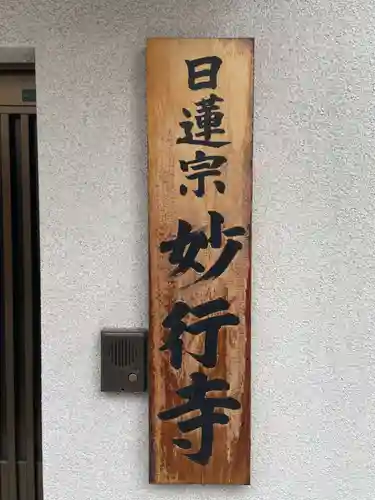 日蓮宗妙行寺